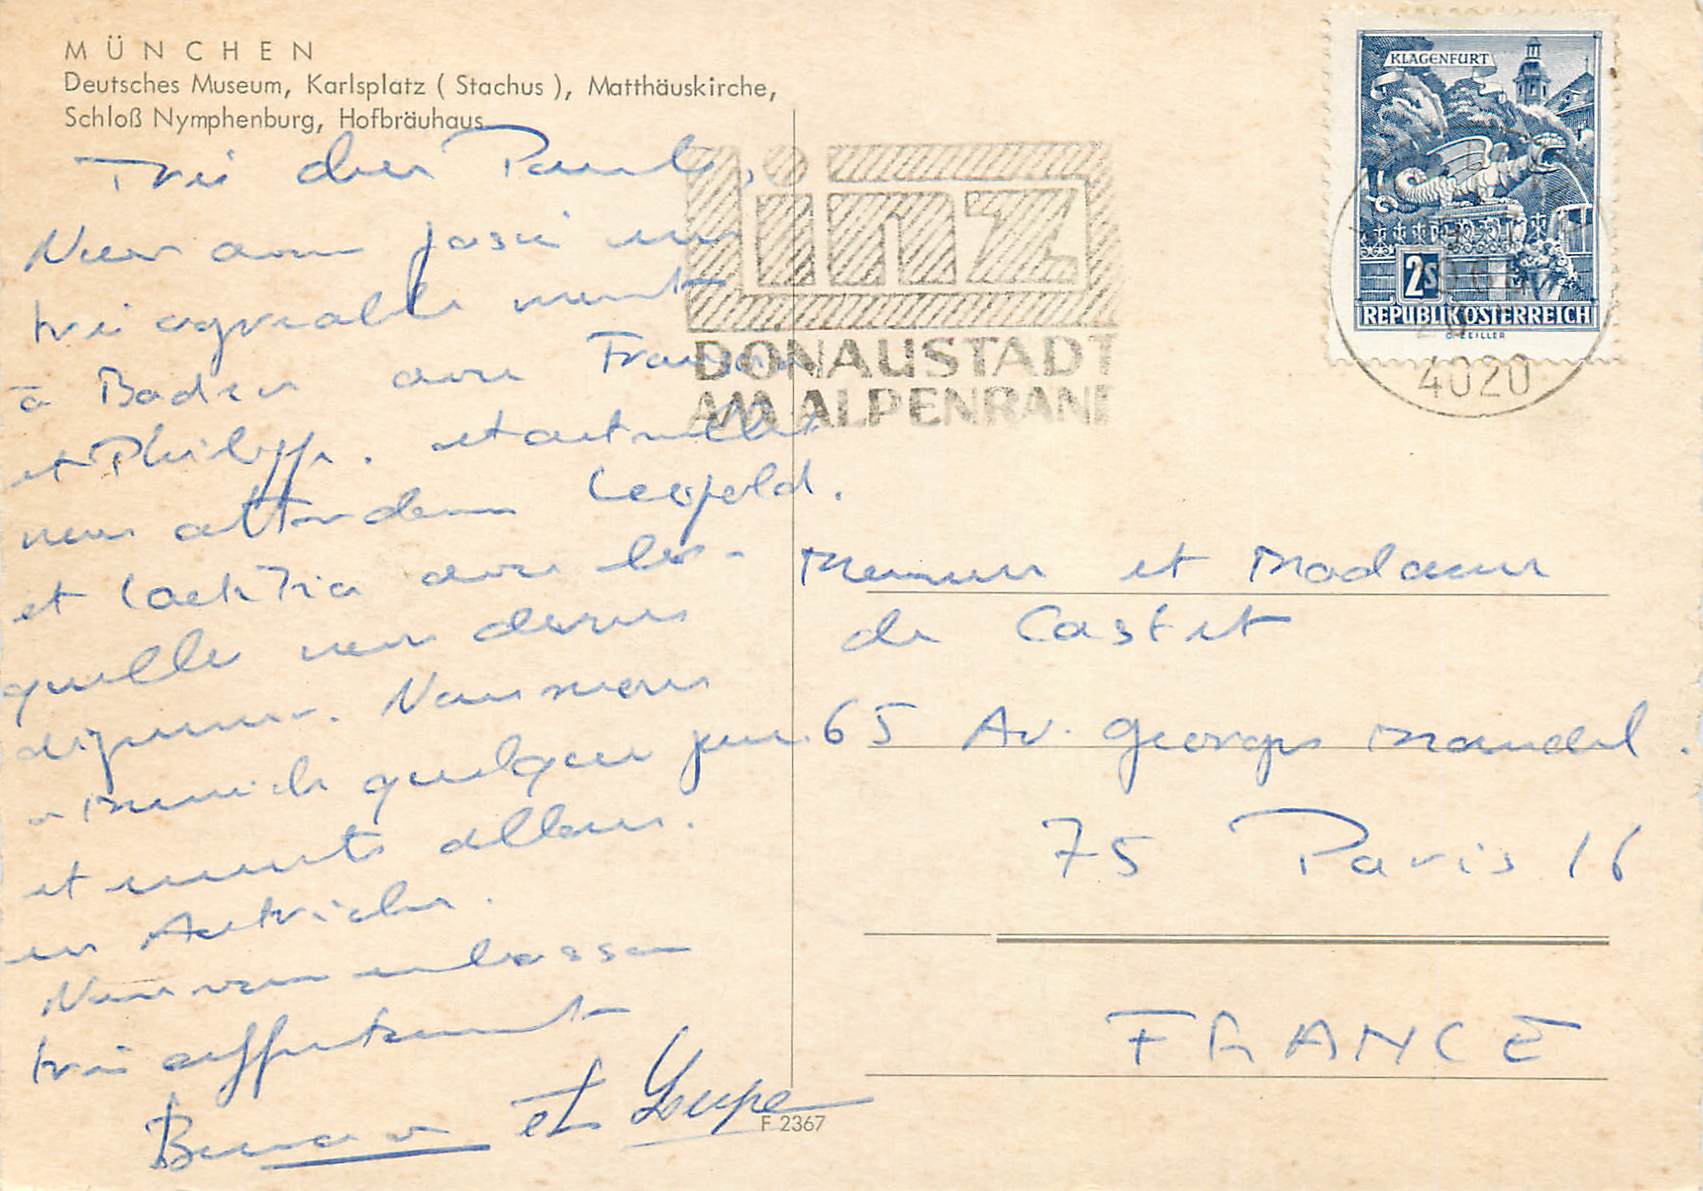 MÜNCHEN
Deutsches Museum, Karlsplatz ( Stachus ), Matthäuskirche,
Schloß Nymphenburg, Hofbräuhaus
Très cher Paul,
Nous avons passé une
très agréable
à Baden avec
et Philippe. et actuellet
nous attendons Leopold.
et Laetitia avec les-
quelle nous devons
déjeuner. Nous sommes
a Munich quelques jours
et ensuite allons
en Autriche.
Nous vous embrassons
très affectueusement
et Lupe
F 2367
linz
DONAUSTADT
AM ALPENRAND
KLAGENFURT
2S
REPUBLIK ÖSTERREICH
4020
Monsieur et Madame
de Castet
65 Av. Georges Mandel.
75 Paris 16
FRANCE